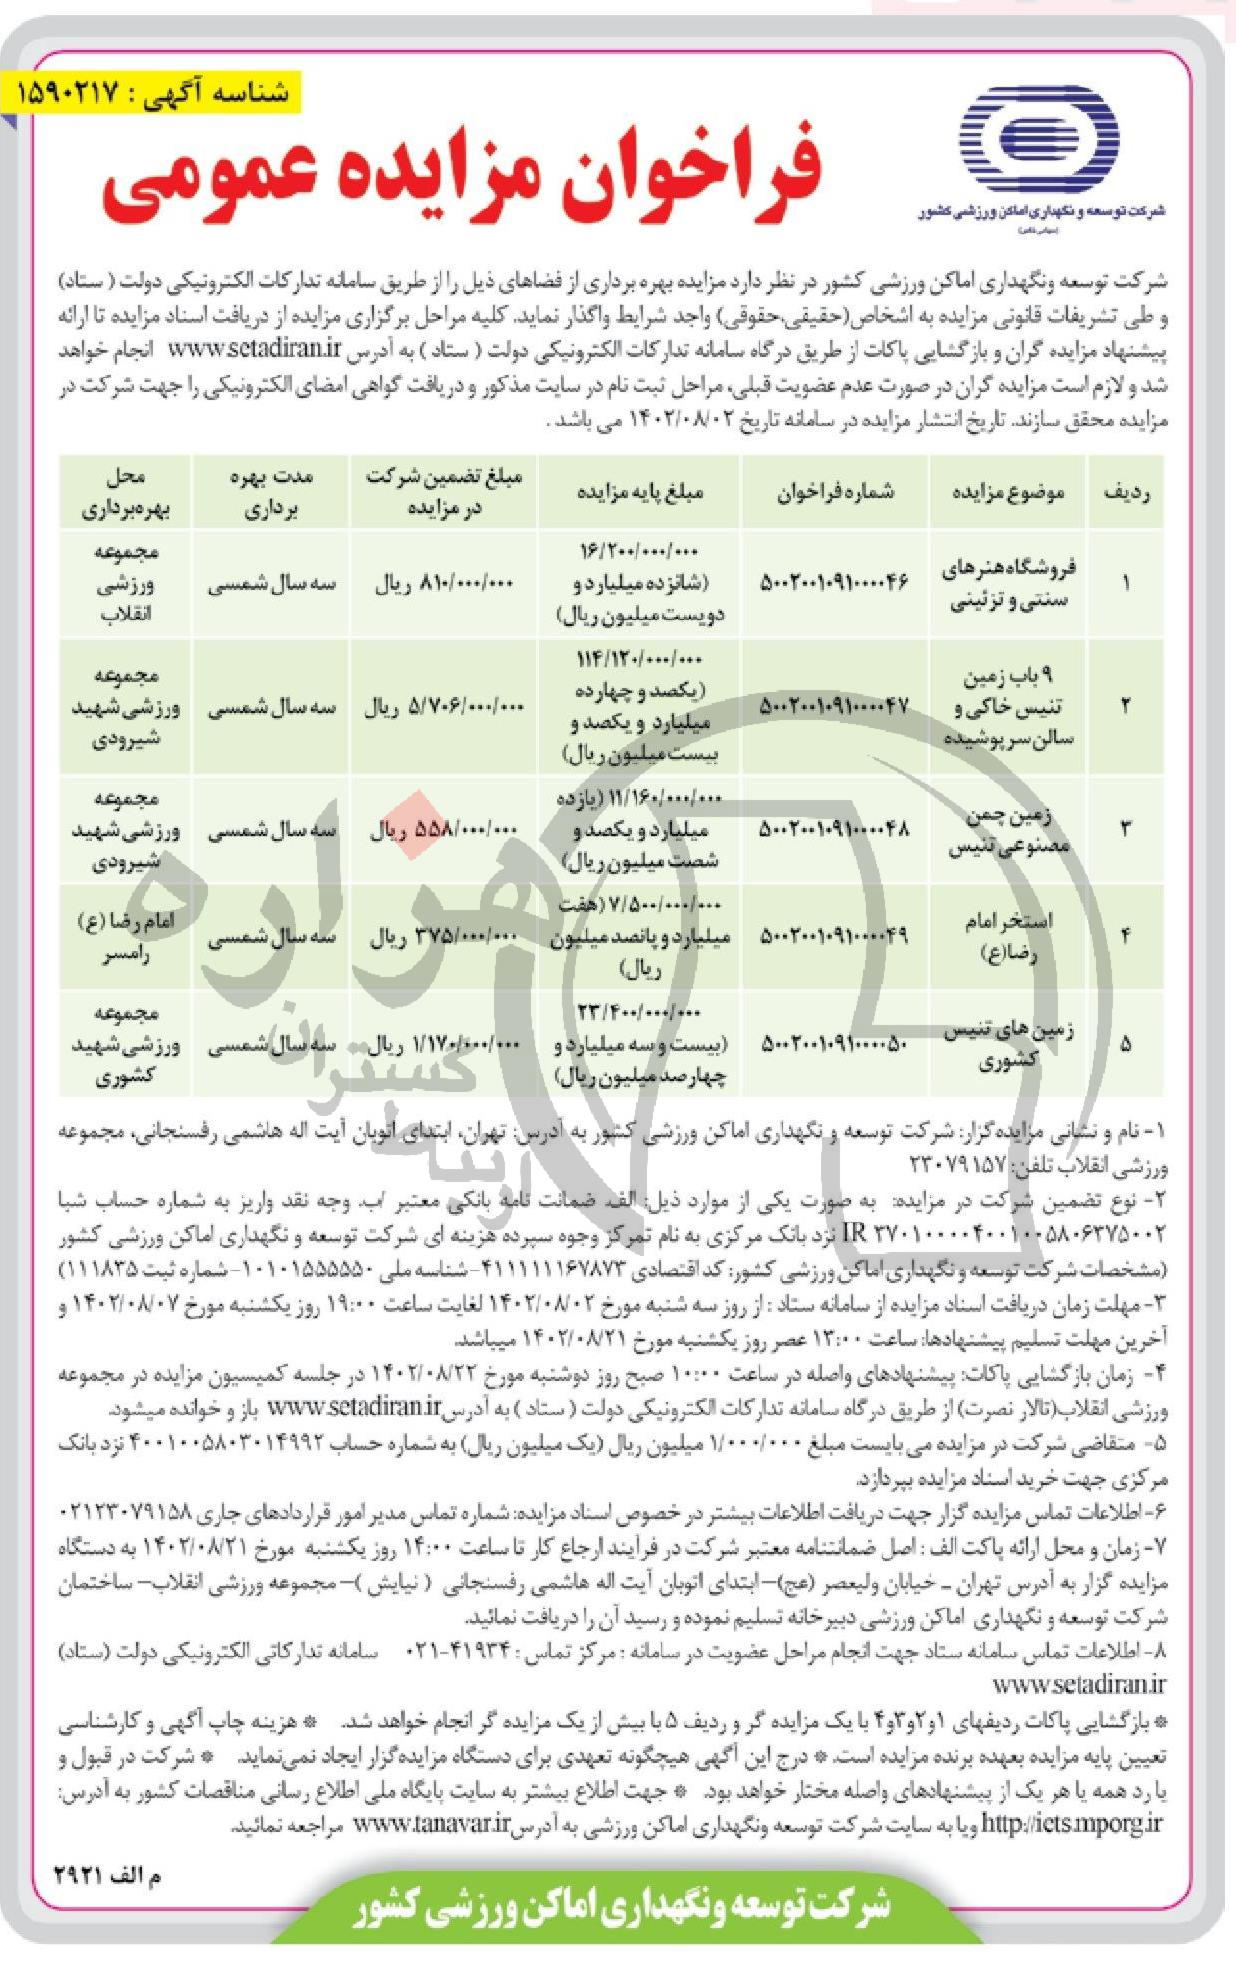 شناسه آگهی : ۱۵۹۰۲۱۷
فراخوان مزایده عمومی
شرکت توسعه و نگهداری اماکن ورزشی کشور
(سهامی خاص)
شرکت توسعه ونگهداری اماکن ورزشی کشور در نظر دارد مزایده بهره برداری از فضاهای ذیل را از طریق سامانه تدارکات الکترونیکی دولت ( ستاد)
و طی تشریفات قانونی مزایده به اشخاص(حقیقی،حقوقی) واجد شرایط واگذار نماید. کلیه مراحل برگزاری مزایده از دریافت اسناد مزایده تا ارائه
پیشنهاد مزایده گران و بازگشایی پاکات از طریق درگاه سامانه تدارکات الکترونیکی دولت ( ستاد ) به آدرس www.setadiran.ir انجام خواهد
شد و لازم است مزایده گران در صورت عدم عضویت قبلی، مراحل ثبت نام در سایت مذکور و دریافت گواهی امضای الکترونیکی را جهت شرکت در
مزایده محقق سازند. تاریخ انتشار مزایده در سامانه تاریخ ۱۴۰۲/۰۸/۰۲ می باشد .
ردیف موضوع مزایده شماره فراخوان مبلغ پایه مزایده مبلغ تضمین شرکت در مزایده مدت بهره برداری محل بهره‌برداری
۱ فروشگاه هنرهای سنتی و تزئینی ۵۰۰۲۰۰۱۰۹۱۰۰۰۰۴۶ ۱۶/۲۰۰/۰۰۰/۰۰۰ (شانزده میلیارد و دویست میلیون ریال) ۸۱۰/۰۰۰/۰۰۰ ریال سه سال شمسی مجموعه ورزشی انقلاب
۲ ۹ باب زمین تنیس خاکی و سالن سرپوشیده ۵۰۰۲۰۰۱۰۹۱۰۰۰۰۴۷ ۱۱۴/۱۲۰/۰۰۰/۰۰۰ (یکصد و چهارده میلیارد و یکصد و بیست میلیون ریال) ۵/۷۰۶/۰۰۰/۰۰۰ ریال سه سال شمسی مجموعه ورزشی شهید شیرودی
۳ زمین چمن مصنوعی تنیس ۵۰۰۲۰۰۱۰۹۱۰۰۰۰۴۸ ۱۱/۱۶۰/۰۰۰/۰۰۰ (یازده میلیارد و یکصد و شصت میلیون ریال) ۵۵۸/۰۰۰/۰۰۰ ریال سه سال شمسی مجموعه ورزشی شهید شیرودی
۴ استخر امام رضا(ع) ۵۰۰۲۰۰۱۰۹۱۰۰۰۰۴۹ ۷/۵۰۰/۰۰۰/۰۰۰ (هفت میلیارد و پانصد میلیون ریال) ۳۷۵/۰۰۰/۰۰۰ ریال سه سال شمسی امام رضا (ع) رامسر
۵ زمین های تنیس کشوری ۵۰۰۲۰۰۱۰۹۱۰۰۰۰۵۰ ۲۳/۴۰۰/۰۰۰/۰۰۰ (بیست و سه میلیارد و چهارصد میلیون ریال) ۱/۱۷۰/۰۰۰/۰۰۰ ریال سه سال شمسی مجموعه ورزشی شهید کشوری
۱- نام و نشانی مزایده‌گزار: شرکت توسعه و نگهداری اماکن ورزشی کشور به آدرس: تهران، ابتدای اتوبان آیت اله هاشمی رفسنجانی، مجموعه
ورزشی انقلاب تلفن: ۲۳۰۷۹۱۵۷
۲- نوع تضمین شرکت در مزایده: به صورت یکی از موارد ذیل: الف. ضمانت نامه بانکی معتبر /ب. وجه نقد واریز به شماره حساب شبا
IR ۳۷۰۱۰۰۰۰۴۰۰۱۰۰۵۸۰۶۳۷۵۰۰۲ نزد بانک مرکزی به نام تمرکز وجوه سپرده هزینه ای شرکت توسعه و نگهداری اماکن ورزشی کشور
(مشخصات شرکت توسعه و نگهداری اماکن ورزشی کشور: کد اقتصادی ۴۱۱۱۱۱۱۶۷۸۷۳-شناسه ملی ۱۰۱۰۱۵۵۵۵۵۰-شماره ثبت ۱۱۱۸۳۵)
۳- مهلت زمان دریافت اسناد مزایده از سامانه ستاد : از روز سه شنبه مورخ ۱۴۰۲/۰۸/۰۲ لغایت ساعت ۱۹:۰۰ روز یکشنبه مورخ ۱۴۰۲/۰۸/۰۷ و
آخرین مهلت تسلیم پیشنهادها: ساعت ۱۳:۰۰ عصر روز یکشنبه مورخ ۱۴۰۲/۰۸/۲۱ میباشد.
۴- زمان بازگشایی پاکات: پیشنهادهای واصله در ساعت ۱۰:۰۰ صبح روز دوشنبه مورخ ۱۴۰۲/۰۸/۲۲ در جلسه کمیسیون مزایده در مجموعه
ورزشی انقلاب(تالار نصرت) از طریق درگاه سامانه تدارکات الکترونیکی دولت ( ستاد ) به آدرس www.setadiran.ir باز و خوانده میشود.
۵- متقاضی شرکت در مزایده می بایست مبلغ ۱/۰۰۰/۰۰۰ میلیون ریال (یک میلیون ریال) به شماره حساب ۴۰۰۱۰۰۵۸۰۳۰۱۴۹۹۲ نزد بانک
مرکزی جهت خرید اسناد مزایده بپردازد.
۶- اطلاعات تماس مزایده گزار جهت دریافت اطلاعات بیشتر در خصوص اسناد مزایده: شماره تماس مدیر امور قراردادهای جاری ۰۲۱۲۳۰۷۹۱۵۸
۷- زمان و محل ارائه پاکت الف : اصل ضمانتنامه معتبر شرکت در فرآیند ارجاع کار تا ساعت ۱۴:۰۰ روز یکشنبه مورخ ۱۴۰۲/۰۸/۲۱ به دستگاه
مزایده گزار به آدرس تهران – خیابان ولیعصر (عج)– ابتدای اتوبان آیت اله هاشمی رفسنجانی ( نیایش )– مجموعه ورزشی انقلاب– ساختمان
شرکت توسعه و نگهداری اماکن ورزشی دبیرخانه تسلیم نموده و رسید آن را دریافت نمائید.
۸- اطلاعات تماس سامانه ستاد جهت انجام مراحل عضویت در سامانه : مرکز تماس : ۴۱۹۳۴-۰۲۱ سامانه تدارکاتی الکترونیکی دولت (ستاد)
www.setadiran.ir
* بازگشایی پاکات ردیفهای ۱و۲و۳و۴ با یک مزایده گر و ردیف ۵ با بیش از یک مزایده گر انجام خواهد شد. * هزینه چاپ آگهی و کارشناسی
تعیین پایه مزایده بعهده برنده مزایده است. * درج این آگهی هیچگونه تعهدی برای دستگاه مزایده‌گزار ایجاد نمی‌نماید. * شرکت در قبول و
یا رد همه یا هر یک از پیشنهادهای واصله مختار خواهد بود. * جهت اطلاع بیشتر به سایت پایگاه ملی اطلاع رسانی مناقصات کشور به آدرس:
http://iets.mporg.ir ویا به سایت شرکت توسعه ونگهداری اماکن ورزشی به آدرس www.tanavar.ir مراجعه نمائید.
م الف ۲۹۲۱
شرکت توسعه ونگهداری اماکن ورزشی کشور
هزاره
گستران